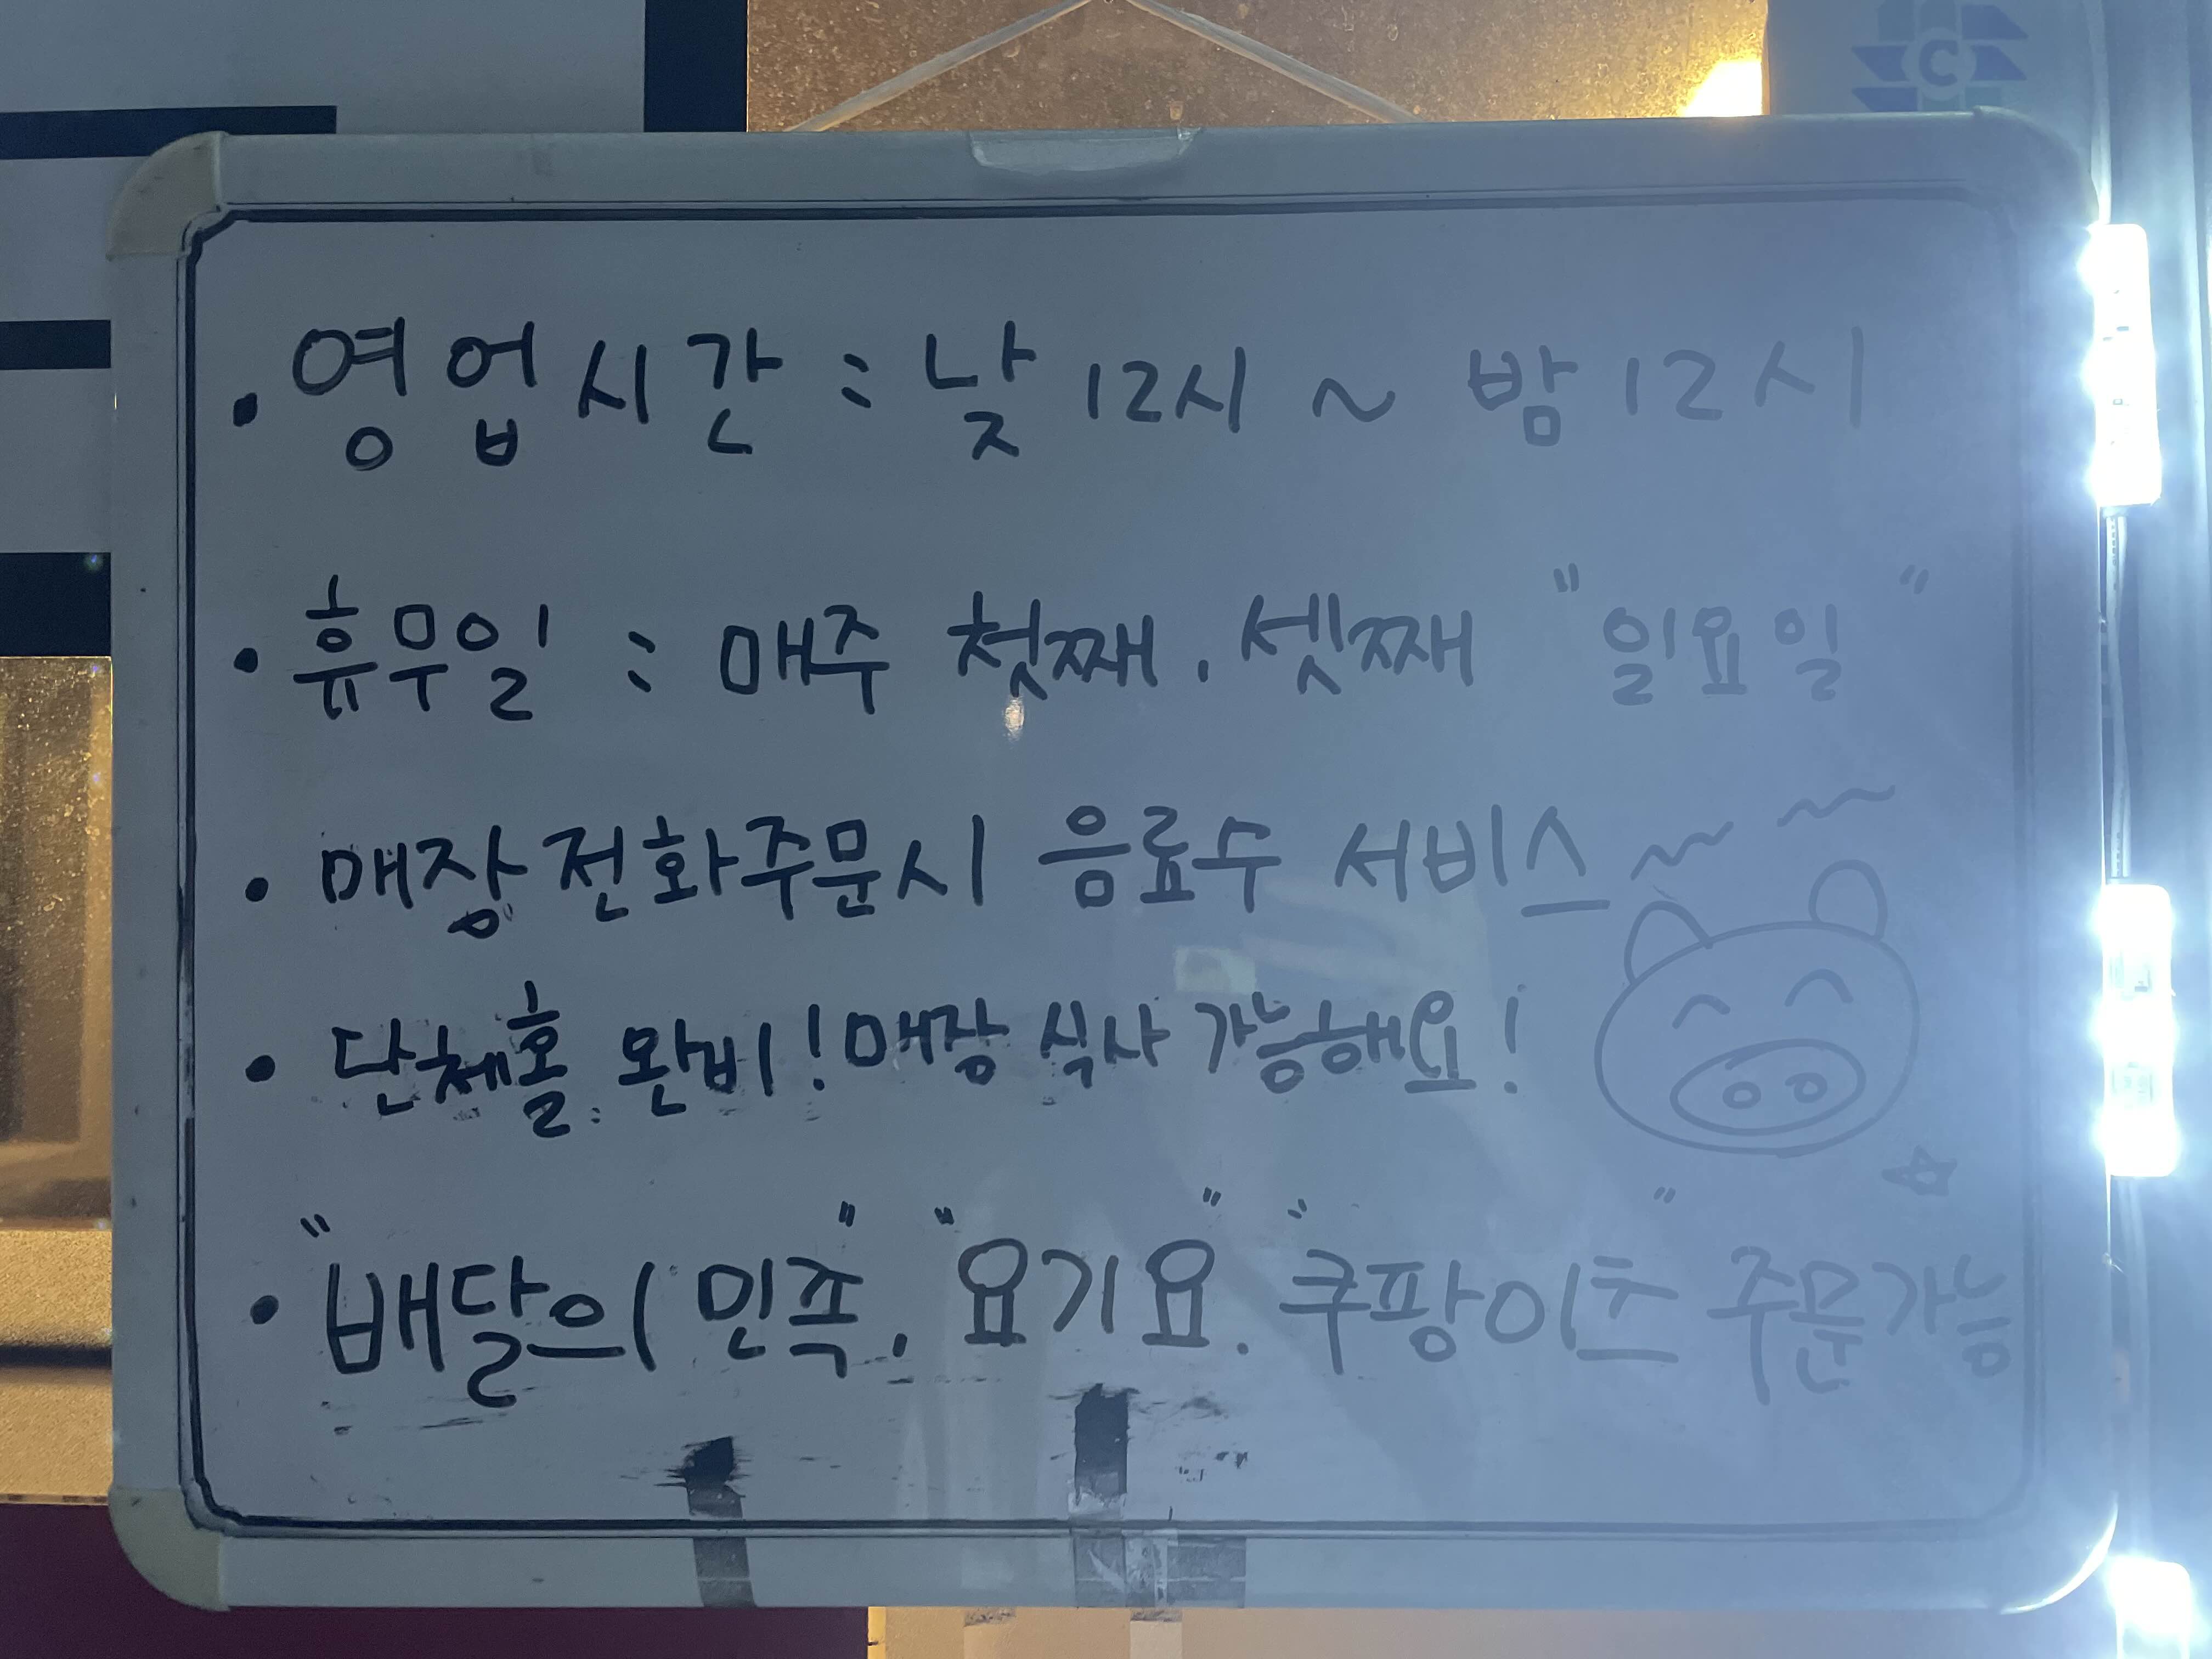 C
• 영업시간 : 낮 12시 ~ 밤 12시
• 휴무일 : 매주 첫째. 셋째 "일요일"
• 매장전화주문시 음료수 서비스~~
• 단체홀 완비! 매장 식사 가능해요!
• "배달의 민족". "요기요". "쿠팡이츠" 주문가능